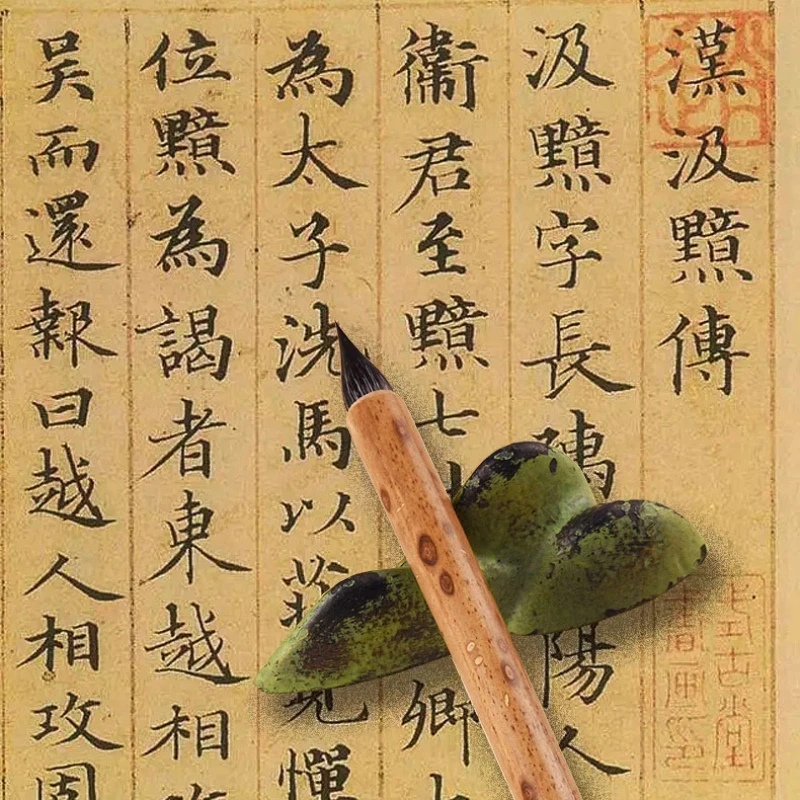 漢汲黯傳
汲黯字長陽人
衛君至黯七卿
為太子洗馬以莊見憚
位黯為謁者東越相
吳而還報曰越人相攻固